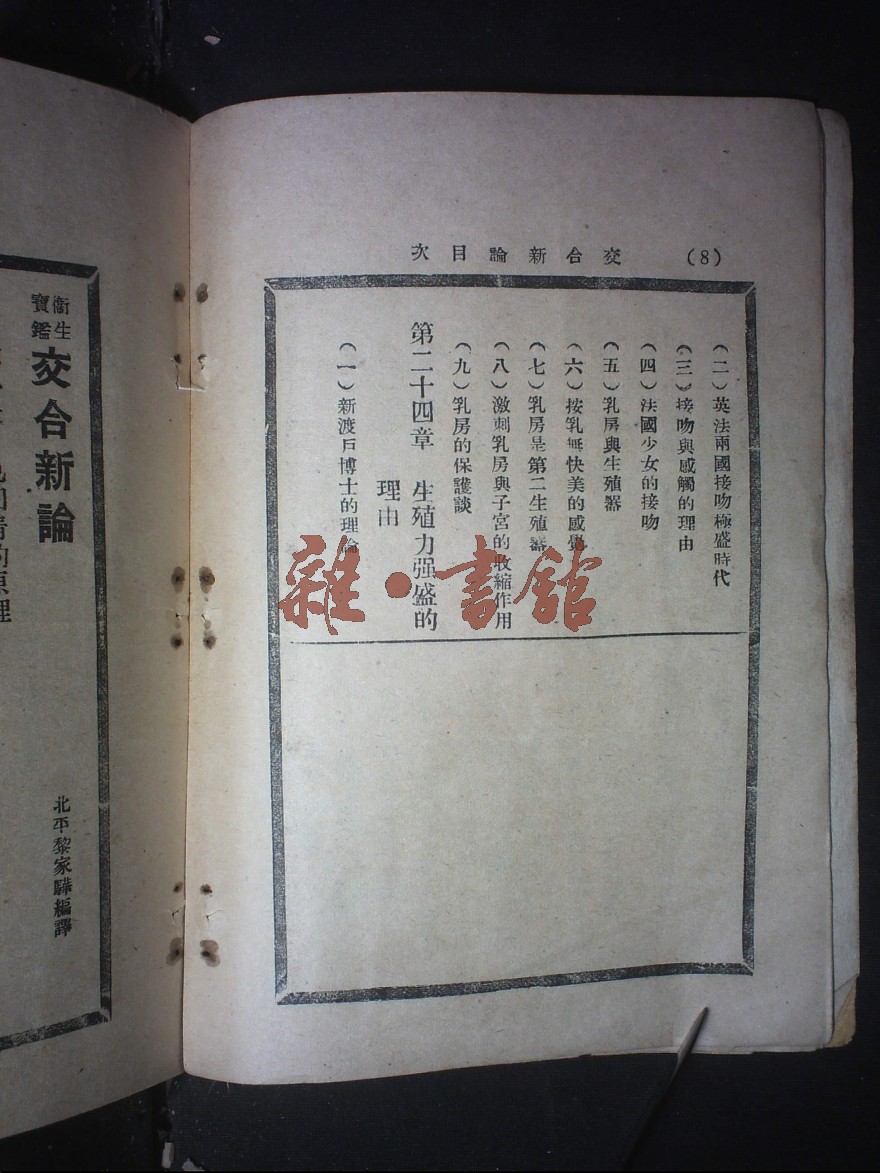 (8)
交合新論目次
(二)英法兩國接吻極盛時代
(三)接吻與感觸的理由
(四)法國少女的接吻
(五)乳房與生殖器
(六)按乳無快美的感覺
(七)乳房是第二生殖器
(八)激刺乳房與子宮的收縮作用
(九)乳房的保護談
第二十四章 生殖力强盛的
理由
(一)新渡戶博士的理論
雜·書館
衞生
寶鑑
交合新論
北平黎家驊編譯
的原理